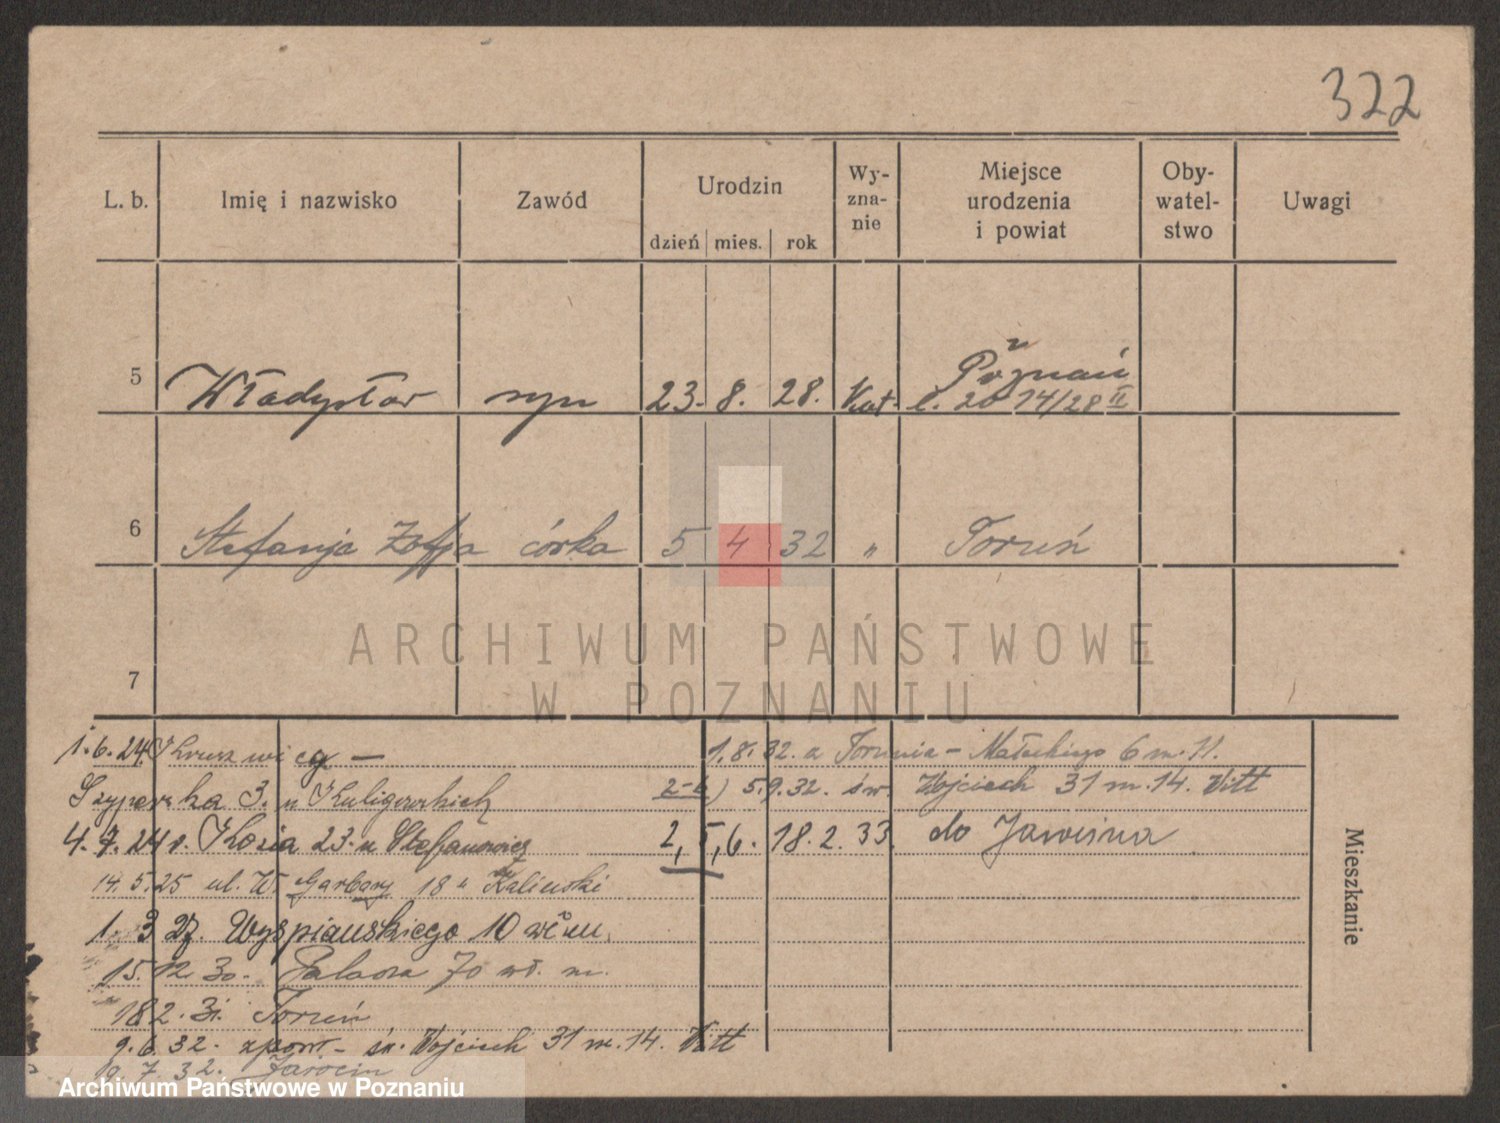 322
L. b.
Imię i nazwisko
Zawód
Urodzin
dzień mies. rok
Wy-
zna-
nie
Miejsce
urodzenia
i powiat
Oby-
watel-
stwo
Uwagi
5 Władysław syn 23. 8. 28. Kat.
Poznań
20 14/28 II
6 Stefanja Zofja córka 5 4 32 „ Toruń
7
ARCHIWUM PAŃSTWOWE
W POZNANIU
1.6.24. Kruszwica —
Szyperska 3. u
4.7.24 Kozia 23. u Stefanowicz
14.5.25 ul. W. Garbary 18 u Kaliński
1. 3 27. Wyspiańskiego 10
15.12 30. 70 wł. m.
18 2. 31. Toruń
9.6.32. z pow. – św. Wojciech 31 m. 14. Witt
19.7.32. Jarocin
1.8.32. z Torunia – Małeckiego 6 m. 11.
2-6) 5.9.32. św. Wojciech 31 m. 14. Witt
2, 5, 6. 18.2.33. do
Mieszkanie
Archiwum Państwowe w Poznaniu